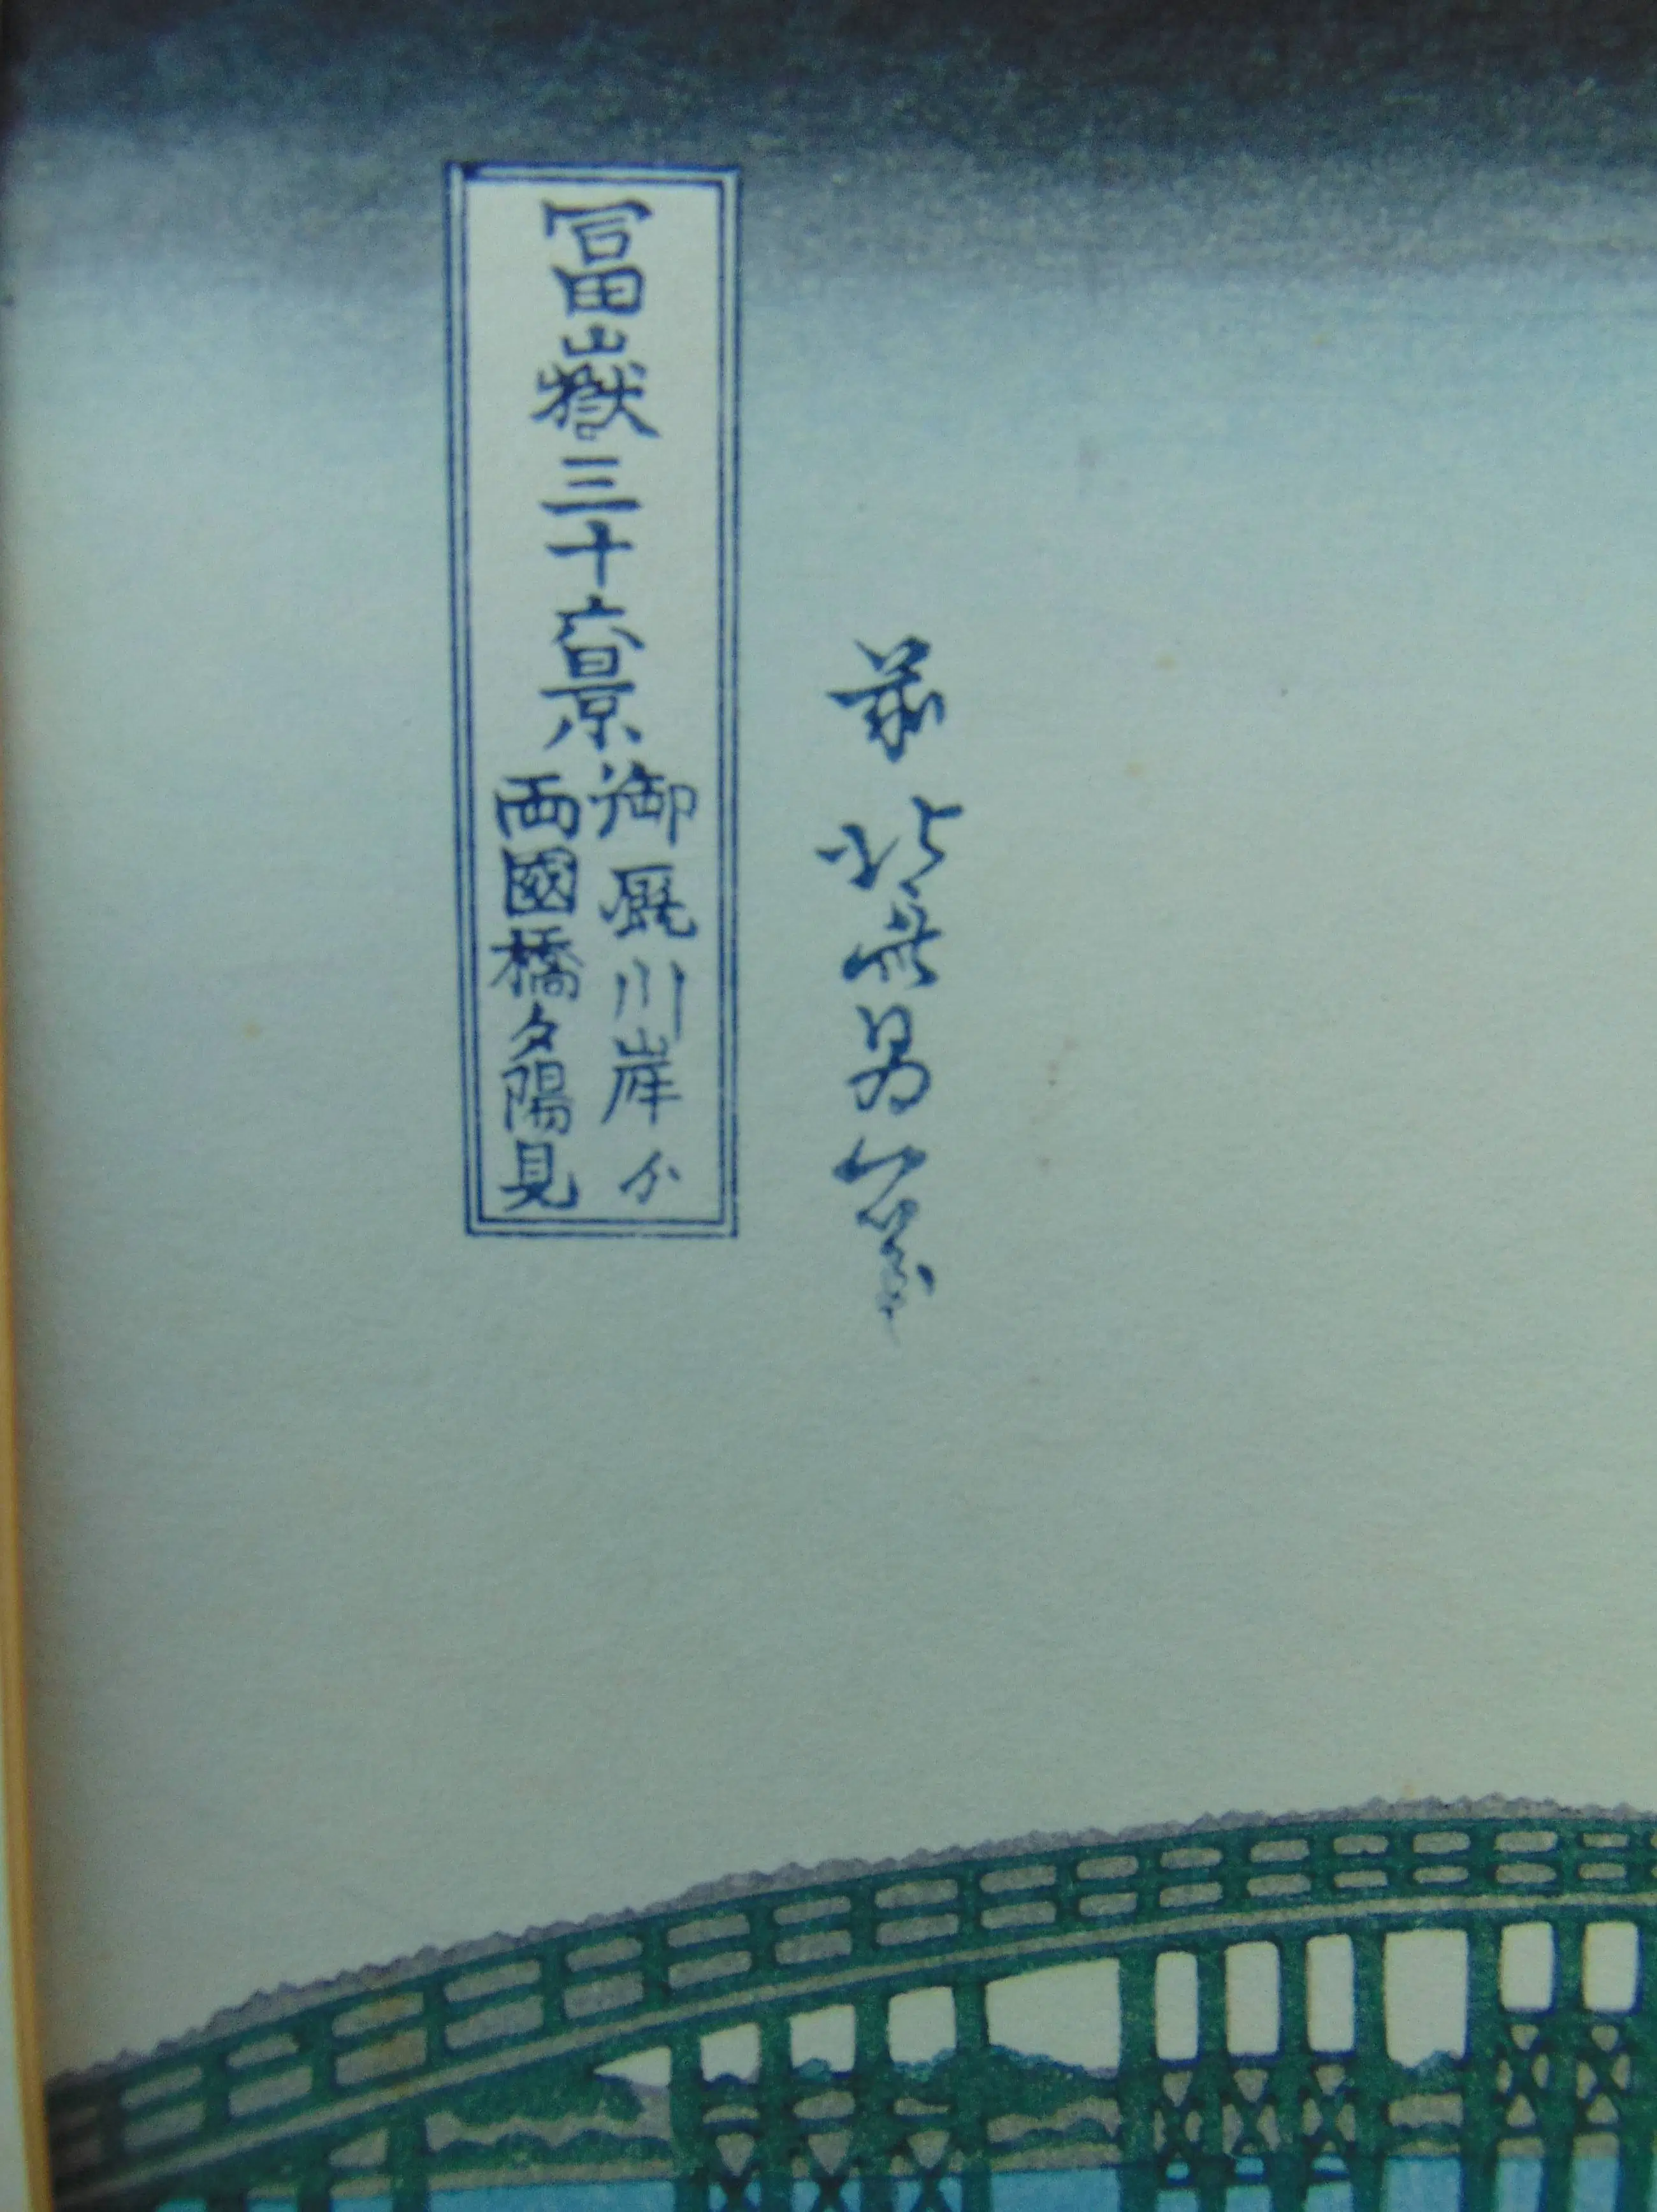 前北斎為一筆
冨嶽三十六景
御厩川岸ゟ
両國橋夕陽見